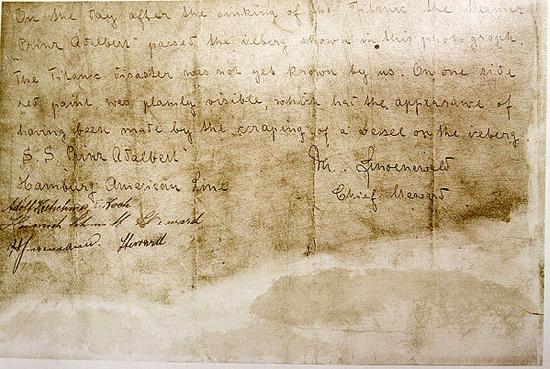 On the day after the sinking of the Titanic the steamer
"Prinz Adalbert" passed the iceberg shown in this photograph.
The Titanic disaster was not yet known by us. On one side
red paint was plainly visible which had the appearance of
having been made by the scraping of a vessel on the iceberg.
S. S. Prinz Adalbert
M. Linoenewald
Hamburg American Line
Chief Steward
Adolf
Steward
Steward